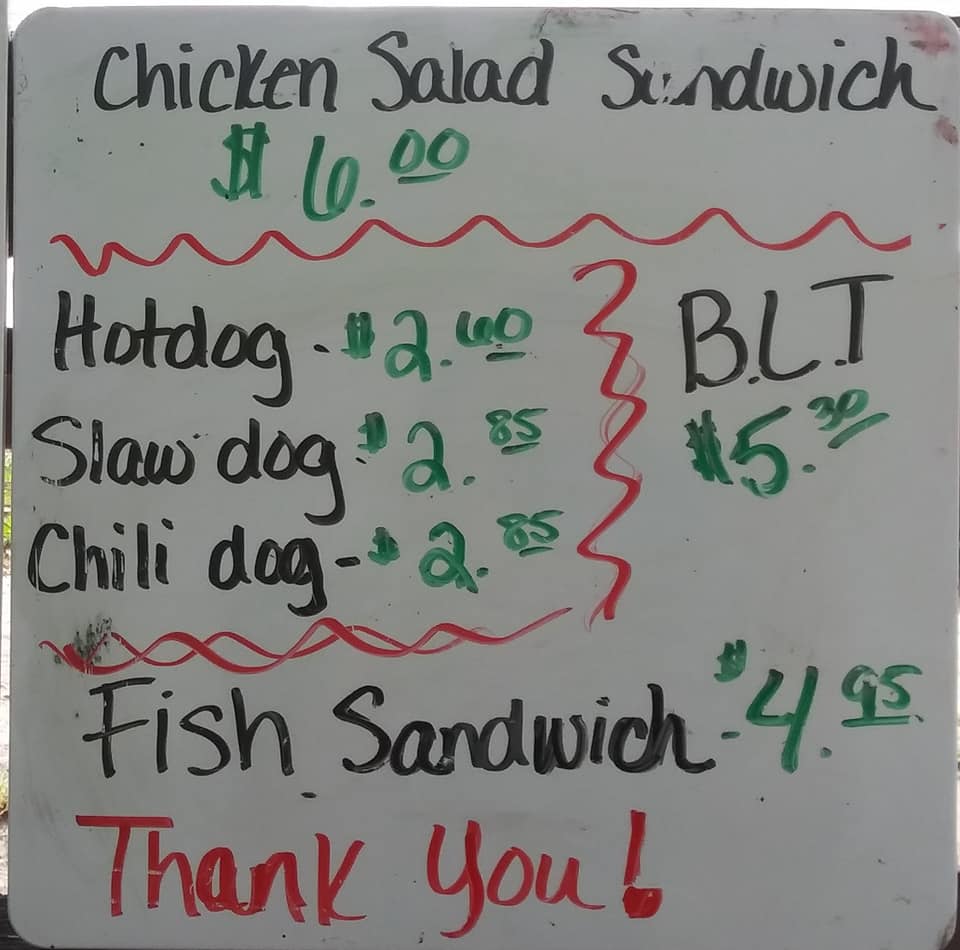 Chicken Salad Sandwich
$6.00
Hotdog - $2.60
Slaw dog - $2.85
Chili dog - $2.85
B.L.T
$5.30
Fish Sandwich - $4.95
Thank You!